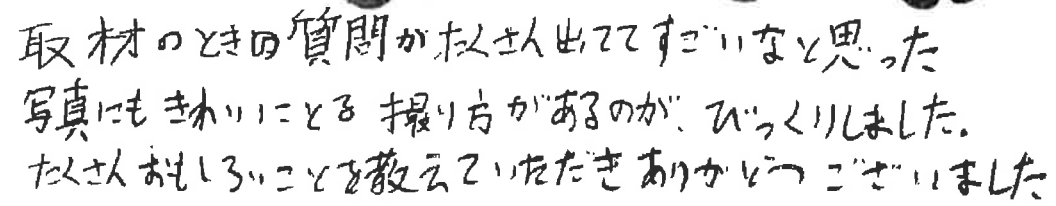 取材のときの質問がたくさん出ててすごいなと思った
写真にもきれいにとる撮り方があるのが、びっくりしました。
たくさんおもしろいことを教えていただきありがとうございました